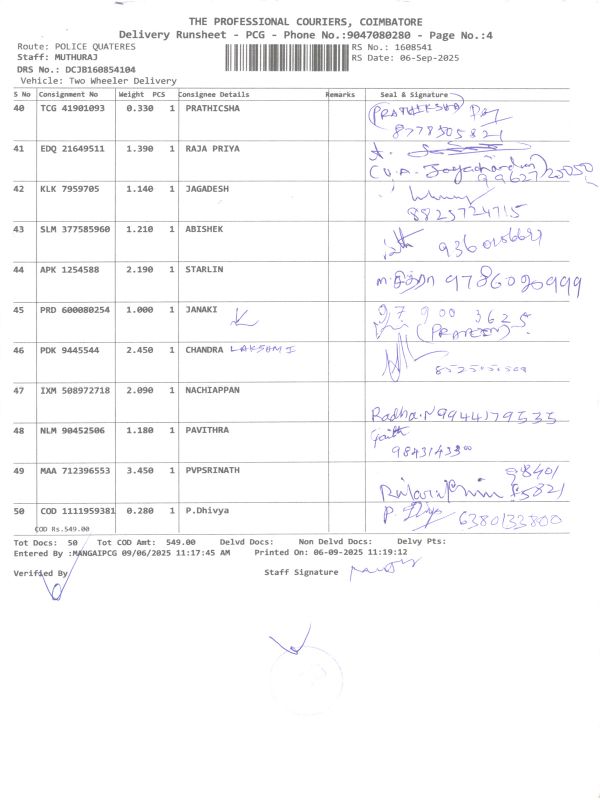 THE PROFESSIONAL COURIERS, COIMBATORE
Delivery Runsheet - PCG - Phone No.:9047080280 - Page No.:4
Route: POLICE QUATERES RS No.: 1608541
Staff: MUTHURAJ RS Date: 06-Sep-2025
DRS No.: DCJB160854104
Vehicle: Two Wheeler Delivery
S No Consignment No Weight PCS Consignee Details Remarks Seal & Signature
40 TCG 41901093 0.330 1 PRATHICSHA PRATHIKSHA
8778305821
41 EDQ 21649511 1.390 1 RAJA PRIYA
42 KLK 7959705 1.140 1 JAGADESH
8825724715
43 SLM 377585960 1.210 1 ABISHEK
44 APK 1254588 2.190 1 STARLIN 9786020999
45 PRD 600080254 1.000 1 JANAKI 97 900 3625
(PRAVEEN)
46 PDK 9445544 2.450 1 CHANDRA LAKSHMI
47 IXM 508972718 2.090 1 NACHIAPPAN
Radha.N 9944179535
48 NLM 90452506 1.180 1 PAVITHRA
49 MAA 712396553 3.450 1 PVPSRINATH 98401
85821
50 COD 1111959381 0.280 1 P.Dhivya P. 6380133800
COD Rs.549.00
Tot Docs: 50 Tot COD Amt: 549.00 Delvd Docs: Non Delvd Docs: Delvy Pts:
Entered By :MANGAIPCG 09/06/2025 11:17:45 AM Printed On: 06-09-2025 11:19:12
Verified By Staff Signature